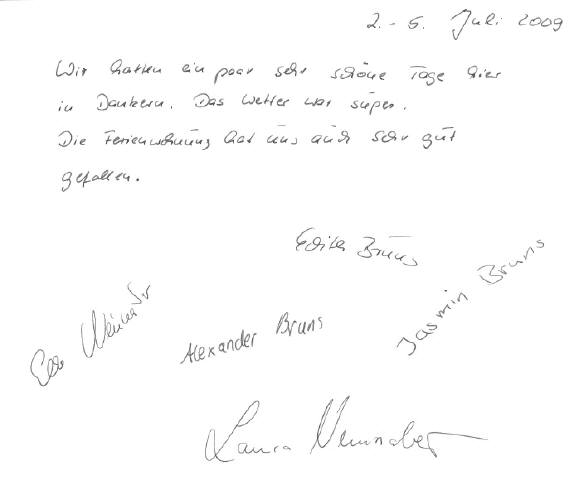 2. - 5. Juli 2009
Wir hatten ein paar sehr schöne Tage hier
in Dankern. Das Wetter war super.
Die Ferienwohnung hat uns auch sehr gut
gefallen.
Bruns
Jasmin Bruns
Alexander Bruns
Laura